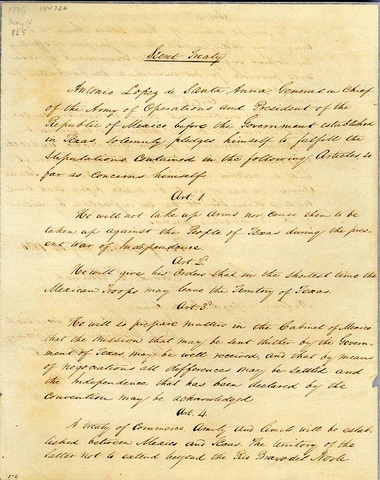 1836
May 14
365
Secret Treaty
Antonio Lopez de Santa Anna, General in Chief
of the Army of Operations and President of the
Republic of Mexico before the Government established
in Texas, Solemnly pledges himself to fulfill the
Stipulations Contained in the following Articles so
far as concerns himself
Art. 1.
He will not take up Arms nor cause them to be
taken up against the People of Texas during the pres-
ent war of Independence
Art 2.
He will give his Orders that in the shortest time the
Mexican Troops may leave the Territory of Texas.
Art. 3.
He will so prepare matters in the Cabinet of Mexico
that the Mission that may be sent thither by the Govern-
ment of Texas may be well received, and that by means
of negociations all differences may be settled and
the Independence that has been declared by the
Convention may be acknowledged
Art. 4.
A treaty of Commerce Amity and limits will be estab-
lished between Mexico and Texas. The territory of the
latter not to extend beyond the Rio Bravo del Norte